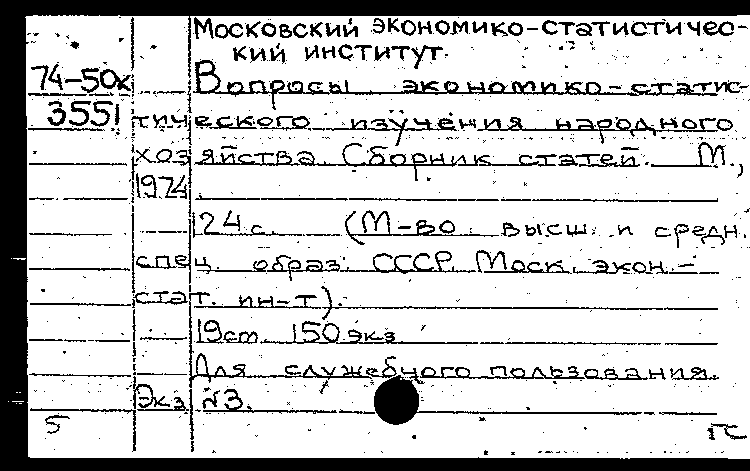 Московский экономико-статистичес-
кий институт.
74-50к Вопросы экономико-статис-
3551 тического изучения народного
хозяйства. Сборник статей. М.,
1974.
124 с. (М-во высш. и средн.
спец. образ. СССР. Моск. экон.-
стат. ин-т).
19 ст. 150 экз.
Для служебного пользования.
Экз. №3.
5 ГС